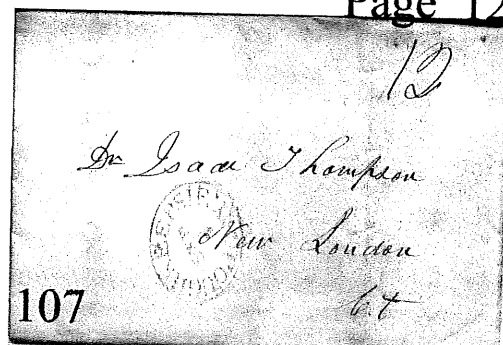 Page 12
12
Dr Isaac Thompson
New London
Ct
107